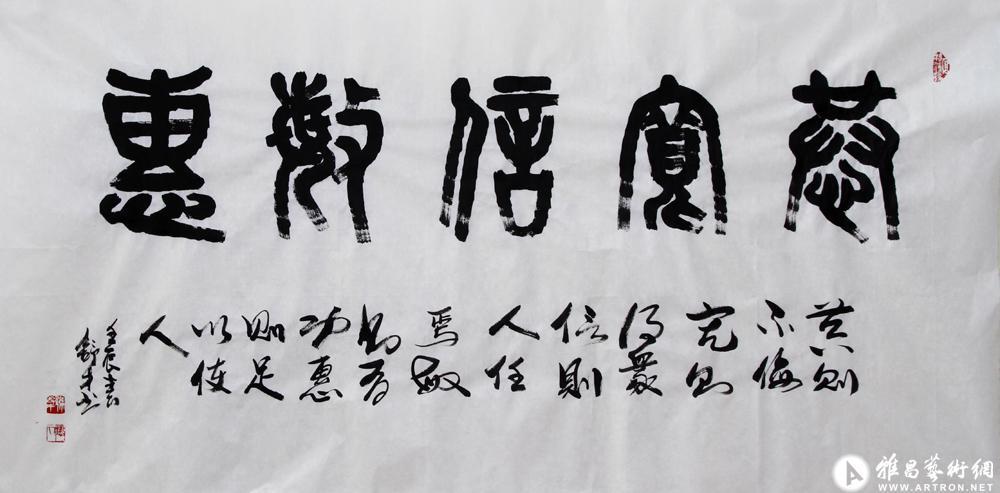 恭寬信敏惠
恭则
不侮
宽则
得眾
信則
人任
焉敏
則有
功惠
則足
以使
人
壬辰
雅昌藝術網
WWW.ARTRON.NET